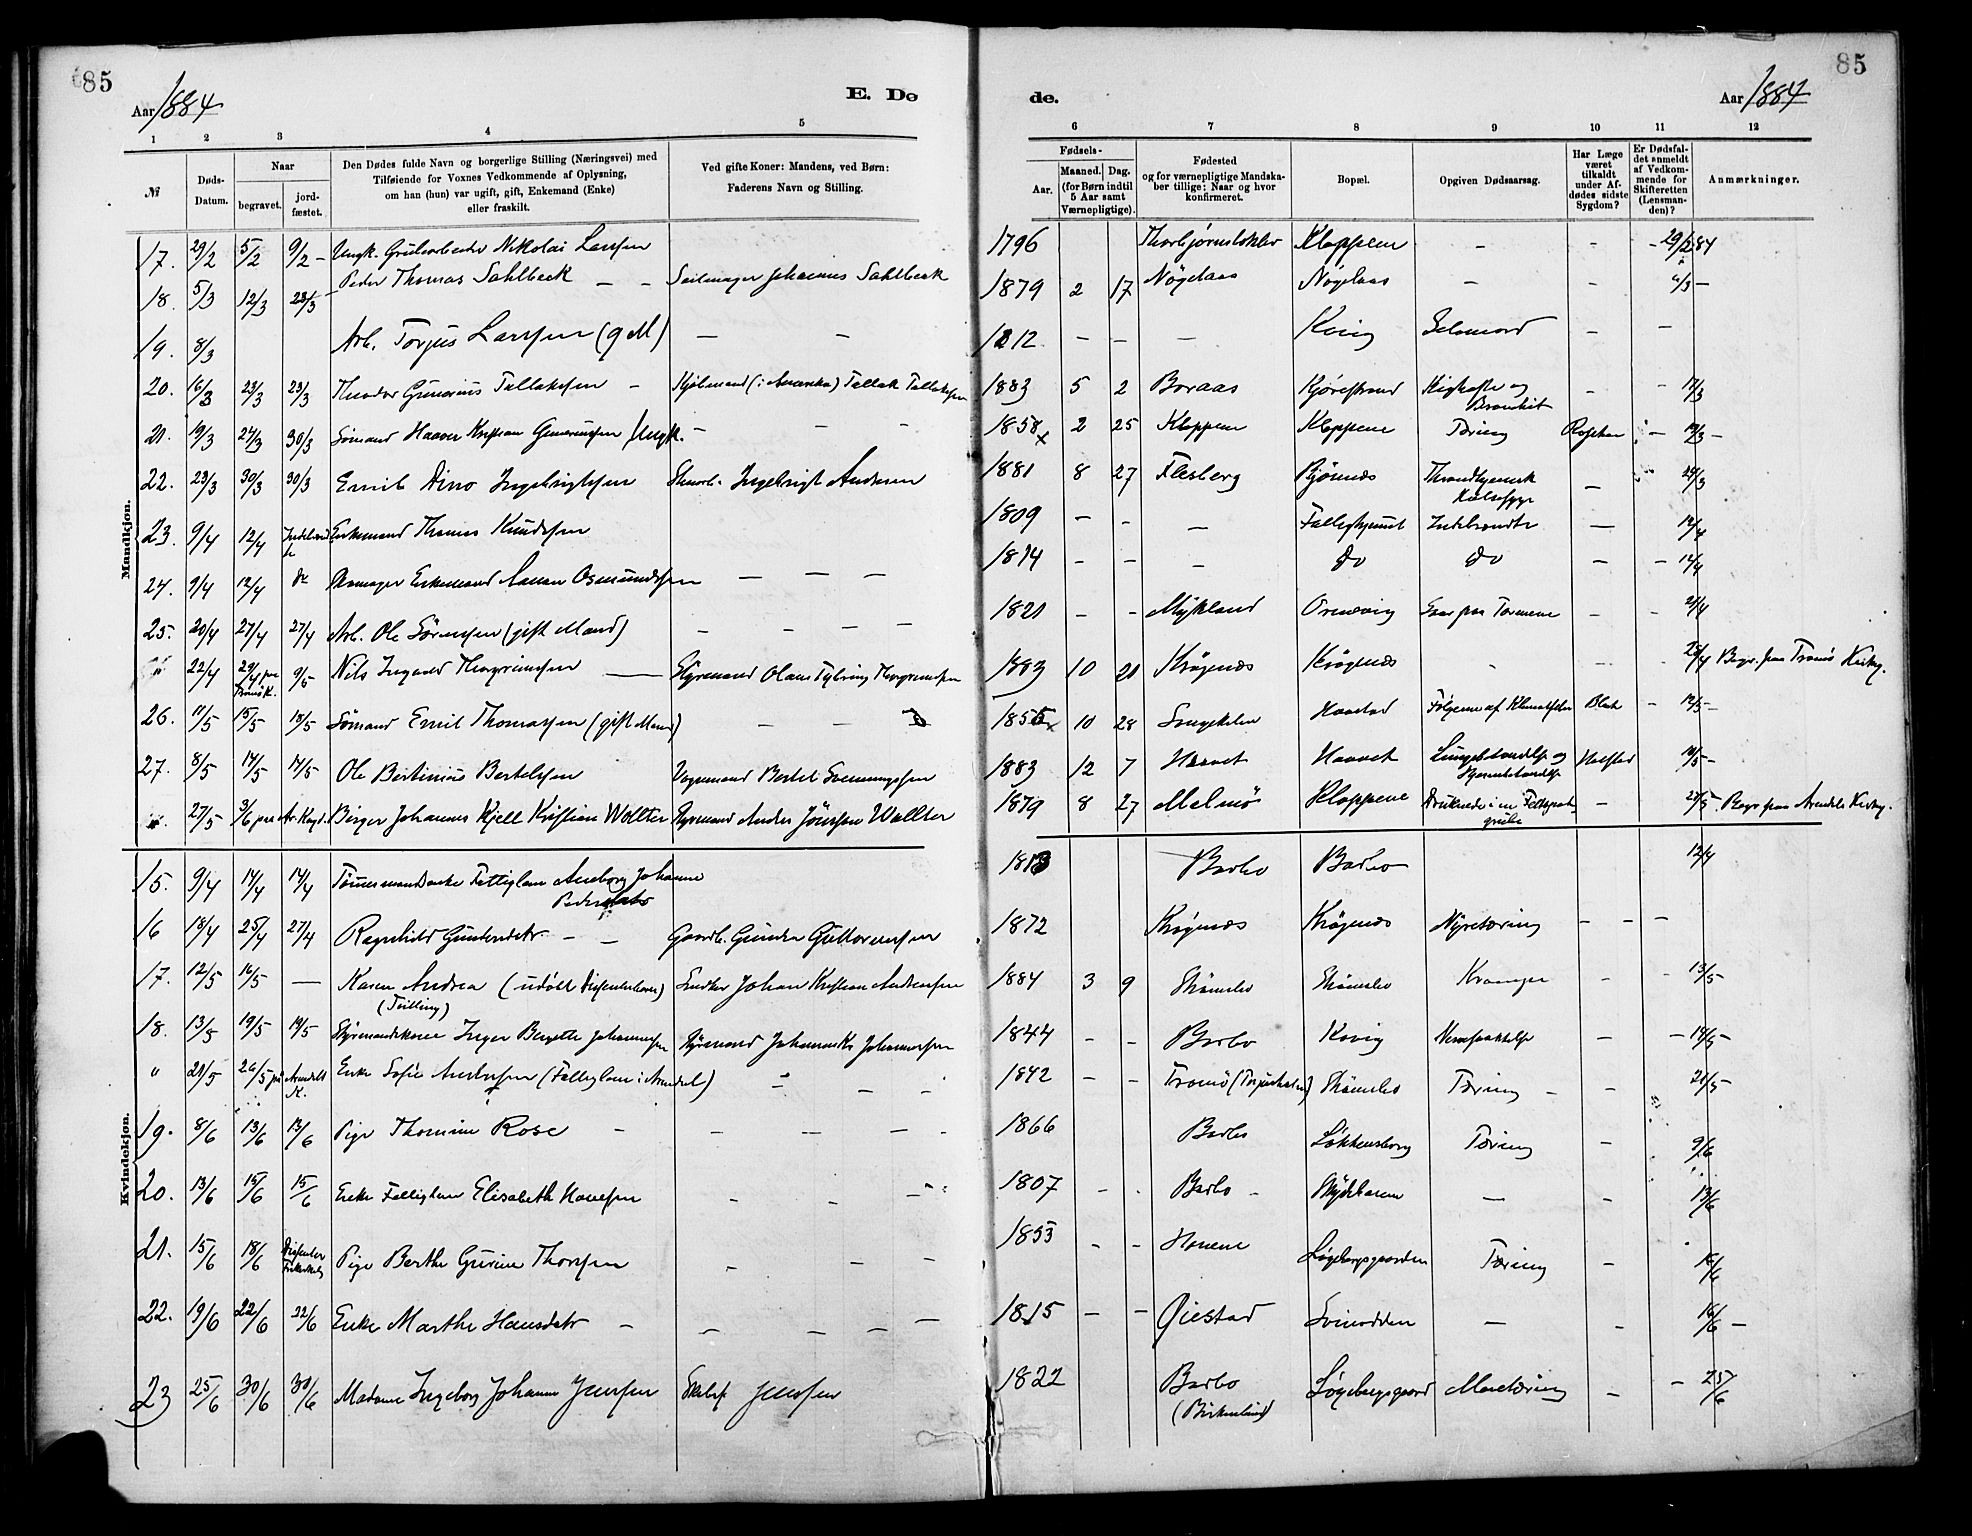 85
Aar 1884
E. Dø
de.
Aar 1884
85
1 2 3 4 5 6 7 8 9 10 11 12
№
Døds-Datum.
Naar
begravet.
jord-fæstet.
Den Dødes fulde Navn og borgerlige Stilling (Næringsvei) med
Tilføiende for Voxnes Vedkommende af Oplysning,
om han (hun) var ugift, gift, Enkemand (Enke)
eller fraskilt.
Ved gifte Koner: Mandens, ved Børn:
Faderens Navn og Stilling.
Fødsels-
Aar.
Maaned. Dag.
(for Børn indtil
5 Aar samt
Værnepligtige).
Fødested
og for værnepligtige Mandska-
ber tillige: Naar og hvor
konfirmeret.
Bopæl.
Opgiven Dødsaarsag.
Har Læge
været
tilkaldt
under Af-
dødes sidste
Sygdom?
Er Dødsfal-
det anmeldt
af Vedkom-
mende for
Skifteretten
(Lensman-
den)?
Anmærkninger.
Mandkjøn.
17. 29/2 5/2 9/2 - Ungk. Nikolai Larssen 1796 Kloppene - - - 29/2 84
18. 5/3 12/3 23/3 Peder Thomas Sahlbeck - - Seilmager Johannes Sahlbeck 1879 2 17 Nøgelaas Nøgelaas - - -
19. 8/3 Arb. Torjus Larssen (g M) - - 1812 - - - Kvig Selvmord - -
20. 16/3 23/3 23/3 Theodor Gunerius Tallaksen - (i Amerika) Tallak Tallaksen 1883 5 2 Boraas Kighoste og Bronkit - - 17/3
21. 19/3 24/3 30/3 Sømand Kristian Ungk. - - - 1858 x 2 25 Kloppene Kloppene Tæring - 19/3 -
22. 23/3 30/3 30/3 Emil Dino Ingebrigtsen Ingebrigt Andersen 1881 8 27 Flesberg Bjønnes - 24/3
23. 9/4 12/4 Enkemand Thomas Knudsen 1809 - - - - 12/4
24. 9/4 12/4 do Enkemand Osmundsen - - - 1814 - - - do do - - 12/4
25. 20/4 27/4 27/4 Arb. Ole Sørensen (gift Mand) - - - - 1821 - - Mykland - - 21/4
" 22/4 29/4 paa Tromø K. 9/5 Nils Thorgrimsen - Styrmand Olaus Thorgrimsen 1883 10 21 Krøgenæs Krøgenæs - - - 23/4 Begr. paa Tromø Kirkeg.
26. 11/5 15/5 15/5 Sømand Emil Thomassen (gift Mand) - - 1855 x 10 28 Songekilen Haastad Følgerne af - 12/5 -
27. 8/5 14/5 14/5 Ole Bertinius Bertelsen Vognmand Bertel Svenningsen 1883 12 7 Haavet Haavet Lungebetændelse og Halstad -
" 27/5 3/6 paa Ar. Kapel. Birger Johannes Kjell Kristian Wollter Styrmand Anders Jönsson Wollter 1879 8 27 Malmø Kloppene Druknede i en Feltspatgrube - 28/5. Begr. paa Arendals Kirkeg.
Kvindekjøn.
15. 9/4 14/4 14/4 Tømmermandsenke Fattiglem Anneborg Johanne Pedersdatter 1813 Barbo Barbo 12/4
16 18/4 25/4 27/4 Ragnhild Gundersdtr. - - Gaardb. Gunder Guttormsen 1872 Krøgenæs Krøgenæs Nyretæring - - -
17. 12/5 16/5 - Karen Andrea (udøbt Dissenterbarn) (Tvilling) Snedker Johan Kristian Andersen 1884 3 9 Strømsbo Strømsbo Kramper - - 13/5
18. 13/5 19/5 19/5 Styrmandskone Inger Bergette Johannessen Styrmand Johannes Johannessen 1844 - - Barbo Kvig - - 14/5 -
" 21/5 26/5 paa Arendals K. Enke Sofie Andersen (Fattiglem i Arendal) - - - 1842 - - Tromø (Torjusholm) Strømsbo Tæring - - 21/5 -
19. 8/6 13/6 13/6 Pige Thomine Rose - - - - - 1866 Barbo Løkkensborg Tæring - 9/6
20. 13/6 15/6 15/6 Enke Fattiglem Elisabeth Hansen - - - 1807 - - Barbo - - - 13/6
21. 15/6 18/6 Dissenter Pige Berthe Gurine Thorsen - - - 1853 - - Løgebergsgaarden Tæring - 16/6
22. 19/6 22/6 22/6 Enke Marthe Hansdtr - - - - - 1815 - - Øiestad Svinodden - - 16/6 -
23 25/6 30/6 30/6 Madame Ingeborg Johanne Jensen Jensen 1822 Barbo (Birkenlund) Løgebergsgaard Mavetæring - - 25/6